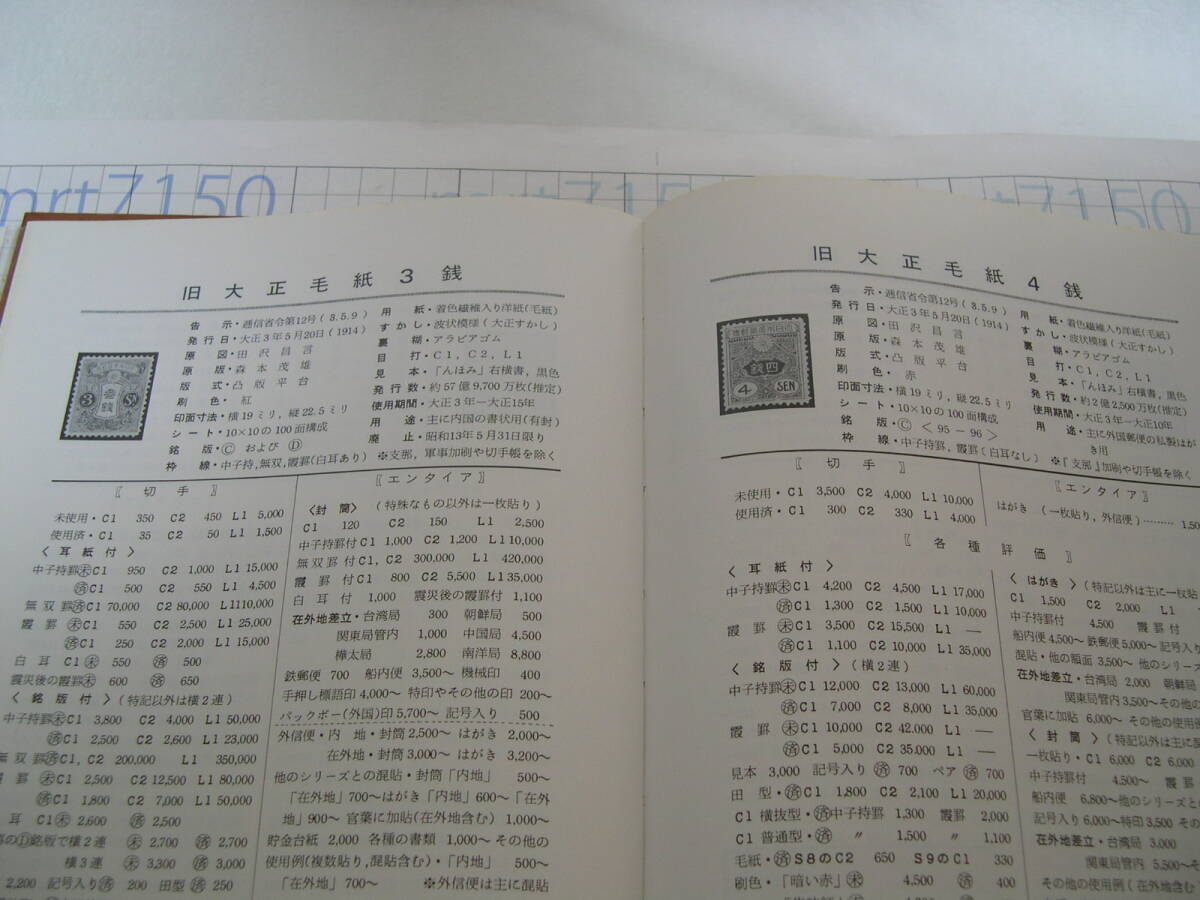 mrt7150
t7150
旧大正毛紙3銭
告示・逓信省令第12号(3.5.9)
発行日・大正3年5月20日(1914)
原図・田沢昌言
原版・森本茂雄
版式・凸版平台
刷色・紅
印面寸法・横19ミリ,縦22.5ミリ
シート・10×10の100面構成
銘版・Ⓒ および Ⓓ
枠線・中子持,無双,霞罫(白耳あり)
用紙・着色繊維入り洋紙(毛紙)
すかし・波状模様(大正すかし)
裏糊・アラビアゴム
目打・C1,C2,L1
見本・「んほみ」右横書,黒色
発行数・約57億9,700万枚(推定)
使用期間・大正3年―大正15年
用途・主に内国の書状用(有封)
廃止・昭和13年5月31日限り
※支那,軍事加刷や切手帳を除く
〖切手〗
未使用・C1 350 C2 450 L1 5,000
使用済・C1 35 C2 50 L1 1,500
〈耳紙付〉
中子持罫㊤C1 950 C2 1,000 L1 15,000
済C1 500 C2 550 L1 4,500
無双罫済C1 70,000 C2 80,000 L1110,000
霞罫 未C1 550 C2 2,500 L1 25,000
済C1 250 C2 2,000 L1 15,000
白耳 C1未 550 済 500
震災後の霞罫未 600 済 650
〈銘版付〉(特記以外は横2連)
中子持罫未C1 3,800 C2 4,000 L1 50,000
済C1 2,500 C2 2,600 L1 23,000
無双罫済C1,C2 200,000 L1 350,000
罫 未C1 2,500 C2 12,500 L1 80,000
済C1 1,800 C2 7,000 L1 50,000
耳 C1未 2,600 済 2,500
のⒹ銘版で横2連 未 2,700 済 2,700
横3連 未 3,300 済 3,000
2,200 記号入り済 200 田型 済 250
〖エンタイア〗
〈封筒〉(特殊なもの以外は一枚貼り)
C1 120 C2 150 L1 2,500
中子持罫付C1 1,000 C2 1,200 L110,000
無双罫付C1,C2 300,000 L1 420,000
霞罫付C1 800 C2 5,500 L135,000
白耳付 1,000 震災後の霞罫付 1,100
在外地差立・台湾局 300 朝鮮局 500
関東局管内 1,000 中国局 4,500
樺太局 2,800 南洋局 8,800
鉄郵便 700 船内便 3,500〜 機械印 400
手押し標語印 4,000〜 特印やその他の印 200〜
パックボー(外国)印 5,700〜 記号入り 500
外信便・内地・封筒 2,500〜 はがき 2,000〜
在外地・封筒 3,000〜 はがき 3,200〜
他のシリーズとの混貼・封筒「内地」 500〜
「在外地」700〜はがき「内地」600〜「在外
地」900〜 官葉に加貼(在外地含む) 1,000〜
貯金台紙 2,000 各種の書類 1,000〜 その他の
使用例(複数貼り,混貼含む)・「内地」 500〜
「在外地」700〜 ※外信便は主に混貼
旧大正毛紙4銭
告示・逓信省令第12号(3.5.9)
発行日・大正3年5月20日(1914)
原図・田沢昌言
原版・森本茂雄
版式・凸版平台
刷色・赤
印面寸法・横19ミリ,縦22.5ミリ
シート・10×10の100面構成
銘版・Ⓒ <95-96>
枠線・中子持罫,霞罫(白耳なし)
用紙・着色繊維入り洋紙(毛紙)
すかし・波状模様(大正すかし)
裏糊・アラビアゴム
目打・C1,C2,L1
見本・「んほみ」右横書,黒色
発行数・約2億2,500万枚(推定)
使用期間・大正3年―大正10年
用途・主に外国郵便の私製はが
き用
※『支那』加刷や切手帳を除く
〖切手〗
未使用・C1 3,500 C2 4,000 L1 10,000
使用済・C1 300 C2 330 L1 4,000
〖エンタイア〗
はがき (一枚貼り,外信便)………
〖各種評価〗
〈耳紙付〉
中子持罫未C1 4,200 C2 4,500 L1 17,000
済C1 1,300 C2 1,500 L1 10,000
霞罫 未C1 3,500 C2 15,500 L1 ―
済C1 1,100 C2 10,000 L1 35,000
〈銘版付〉(横2連)
中子持罫未C1 12,000 C2 13,000 L1 60,000
済C1 7,000 C2 8,000 L1 35,000
霞罫 未C1 10,000 C2 42,000 L1 ―
済C1 5,000 C2 35,000 L1 ―
見本 3,000 記号入り 済 700 ペア 済 700
田型・済C1 1,800 C2 2,100 L1 20,000
C1 横抜型・済中子持罫 1,300 霞罫 2,000
C1 普通型・済 〃 1,500 〃 1,100
毛紙・済 S8のC2 650 S9のC1 330
刷色・「暗い赤」未 4,500 済 400
〈はがき〉(特記以外は主に一枚貼
C1 1,500 C2 2,000 L1
中子持罫付 4,500 霞罫付
船内便 4,500〜 鉄郵便 5,000〜 記号入り
混貼・他の額面 3,500〜 他のシリーズ
在外地差立・台湾局 2,000 朝鮮局
関東局管内 3,500〜その他の
官葉に加貼 6,000〜 その他の使用
〈封筒〉(特記以外は主に
一枚貼り・C1 6,000 C2 6,000
中子持罫付 4,500〜 霞
船内便 6,800〜他のシリーズと
記号入り 6,000 特印 3,500
在外地差立・台湾局 3,000
関東局管内 5,500〜そ
その他の使用例(在外地含む)